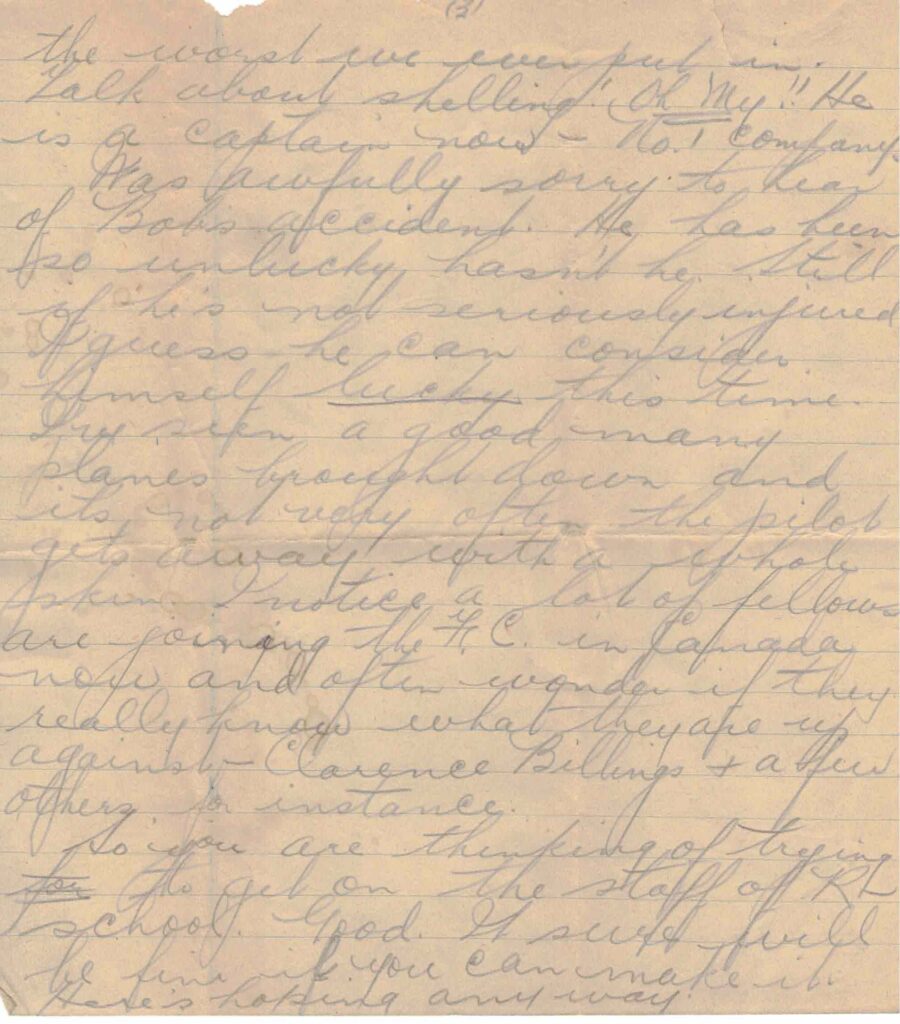 (3)
the worst we ever put in.
Talk about shelling! Oh My!! He
is a captain now - No. 1 company.
Was awfully sorry to hear
of Bob's accident. He has been
so unlucky, hasn't he. Still
if he's not seriously injured
I guess he can consider
himself lucky this time.
I've seen a good many
planes brought down and
its not very often the pilot
gets away with a whole
skin. I notice a lot of fellows
are joining the F. C. in Canada
now and often wonder if they
really know what they are up
against - Clarence Billings + a few
others for instance.
So you are thinking of trying
for to get on the staff of RL
school. Good. It sure will
be fine if you can make it.
Here's hoping anyway.